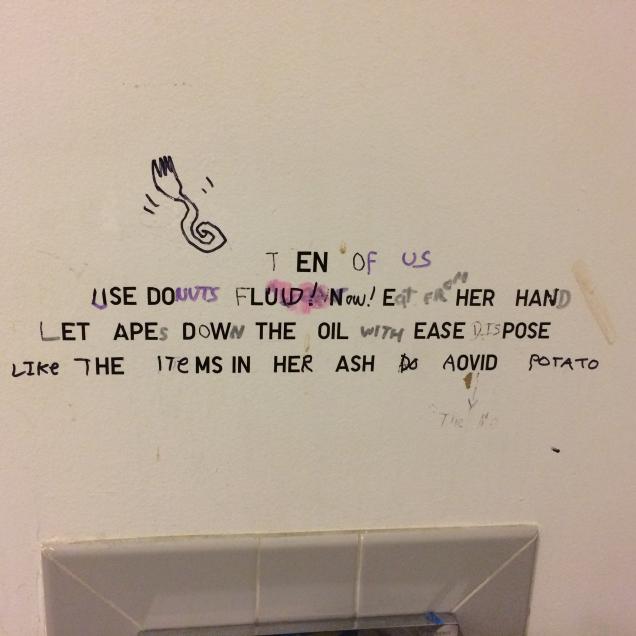 TEN OF US
USE DONUTS FLUID! Now! Eat FROM HER HAND
LET APEs DOWN THE OIL WITH EASE DISPOSE
LIKe THE ITeMS IN HER ASH Do AOVID POTATO